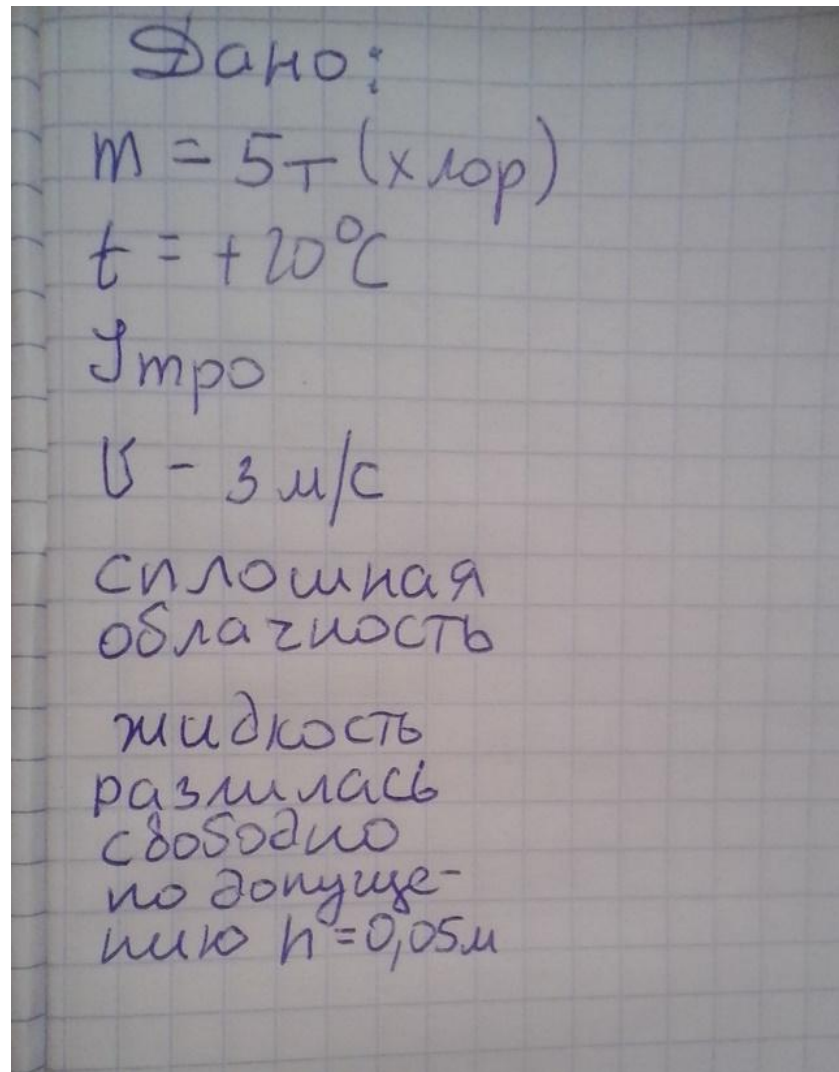 Дано:
m = 5т (хлор)
t = +20°C
Утро
V - 3 м/с
сплошная
облачность
жидкость
разлилась
свободно
по допуще-
нию h = 0,05м